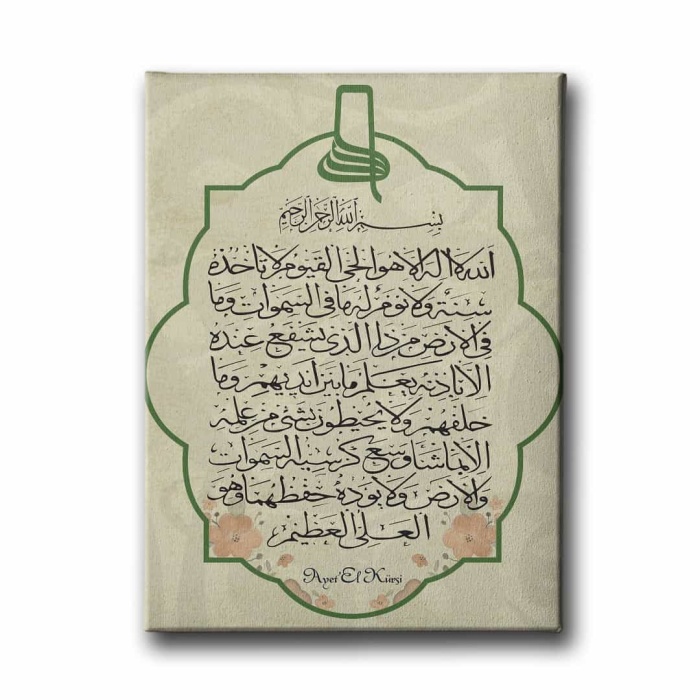 بسم الله الرحمن الرحيم
الله لا اله الا هو الحي القيوم لا تاخذه
سنة ولا نوم له ما في السموات وما
في الارض من ذا الذي يشفع عنده
الا باذنه يعلم ما بين ايديهم وما
خلفهم ولا يحيطون بشئ من علمه
الا بما شاء وسع كرسيه السموات
والارض ولا يؤده حفظهما وهو
العلي العظيم
Ayet'El Kürsi